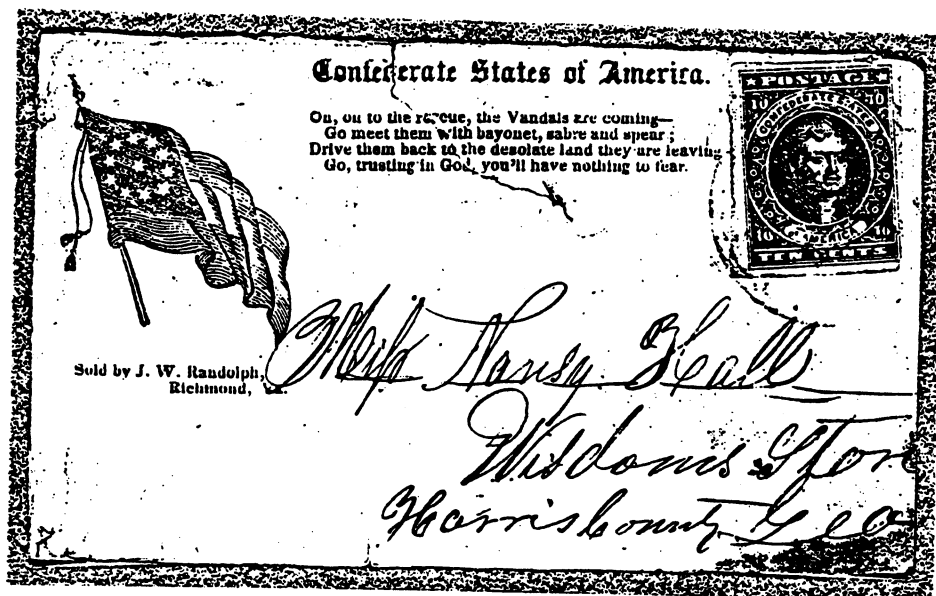 Confederate States of America.
On, on to the rescue, the Vandals are coming—
Go meet them with bayonet, sabre and spear;
Drive them back to the desolate land they are leaving
Go, trusting in God, you'll have nothing to fear.
★ POSTAGE ★
10 10
CONFEDERATE STATES
OF AMERICA
10 10
TEN CENTS
Sold by J. W. Randolph,
Richmond, Va.
Miss Nansy Hall
Wisdoms Store
Harris County Geo